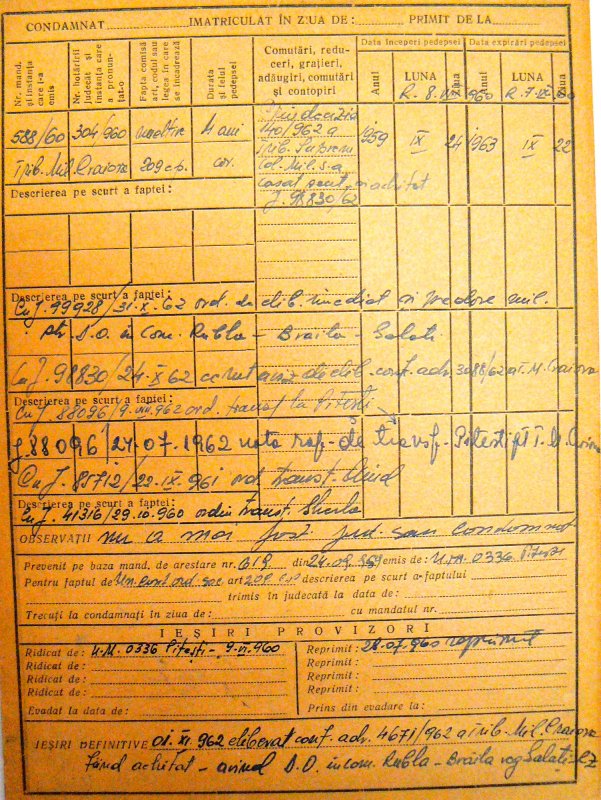 CONDAMNAT IMATRICULAT ÎN ZIUA DE: PRIMIT DE LA
Nr. mand. și instanța care l-a emis
Nr. hotărîrii judecăt și instanța care a pronunțat-o
Fapta comisă art. codul sau legea în care se încadrează
Durata și felul pedepsei
Comutări, reduceri, grațieri, adăugiri, comutări și contopiri
Data începeri pedepsei Data expirări pedepsei
Anul LUNA Ziua Anul LUNA Ziua
588/60 304/960 uneltire 4 ani 959 IX 24 1963 IX 22
Trib. Mil. Craiova 209 c.p. cor.
Prin decizia
140/962 a
Trib. Suprem
col. Mil. s-a
casat sent. și achitat
J. 98830/62
Descrierea pe scurt a faptei:
Descrierea pe scurt a faptei:
Cu J. 99928/31.X.62 ord. de elib. imediat
ptr. D.O. în Com. Rubla - Braila - Galati
Cu J. 98830/24.X 62 elib. conf. adr. 3088/62 a T. M. Craiova
Descrierea pe scurt a faptei:
Cu J. 88096/9. 962 ord. transf la Pitesti
J. 88096/24.07.1962 nota rap. de transf. Pitesti pt T. M. Craiova
Cu J. 85712/22.IX.961 ord. transf.
Descrierea pe scurt a faptei:
Cu J. 41316/29.10.960 ordin transf. Gherla
OBSERVAȚII nu a mai fost jud. sau condamnat
Prevenit pe baza mand. de arestare nr. 619 din 24.09.959 emis de: U.M. 0336 Pitești
Pentru faptul de Un. cont. ord. soc. art 209 c.p descrierea pe scurt a faptului
trimis în judecată la data de:
Trecuți la condamnați în ziua de: cu mandatul nr.
IEȘIRI PROVIZORI
Ridicat de: U.M. 0336 Pitești - 9.VI.960 Reprimit: 28.07.960 reprimit
Ridicat de: Reprimit:
Ridicat de: Reprimit:
Ridicat de: Reprimit:
Evadat la data de: Prins din evadare la:
IEȘIRI DEFINITIVE 01.XI.962 eliberat conf. adr. 4671/962 a Trib. Mil. Craiova
fiind achitat - avînd D.O. în com. Rubla - Brăila reg Galați